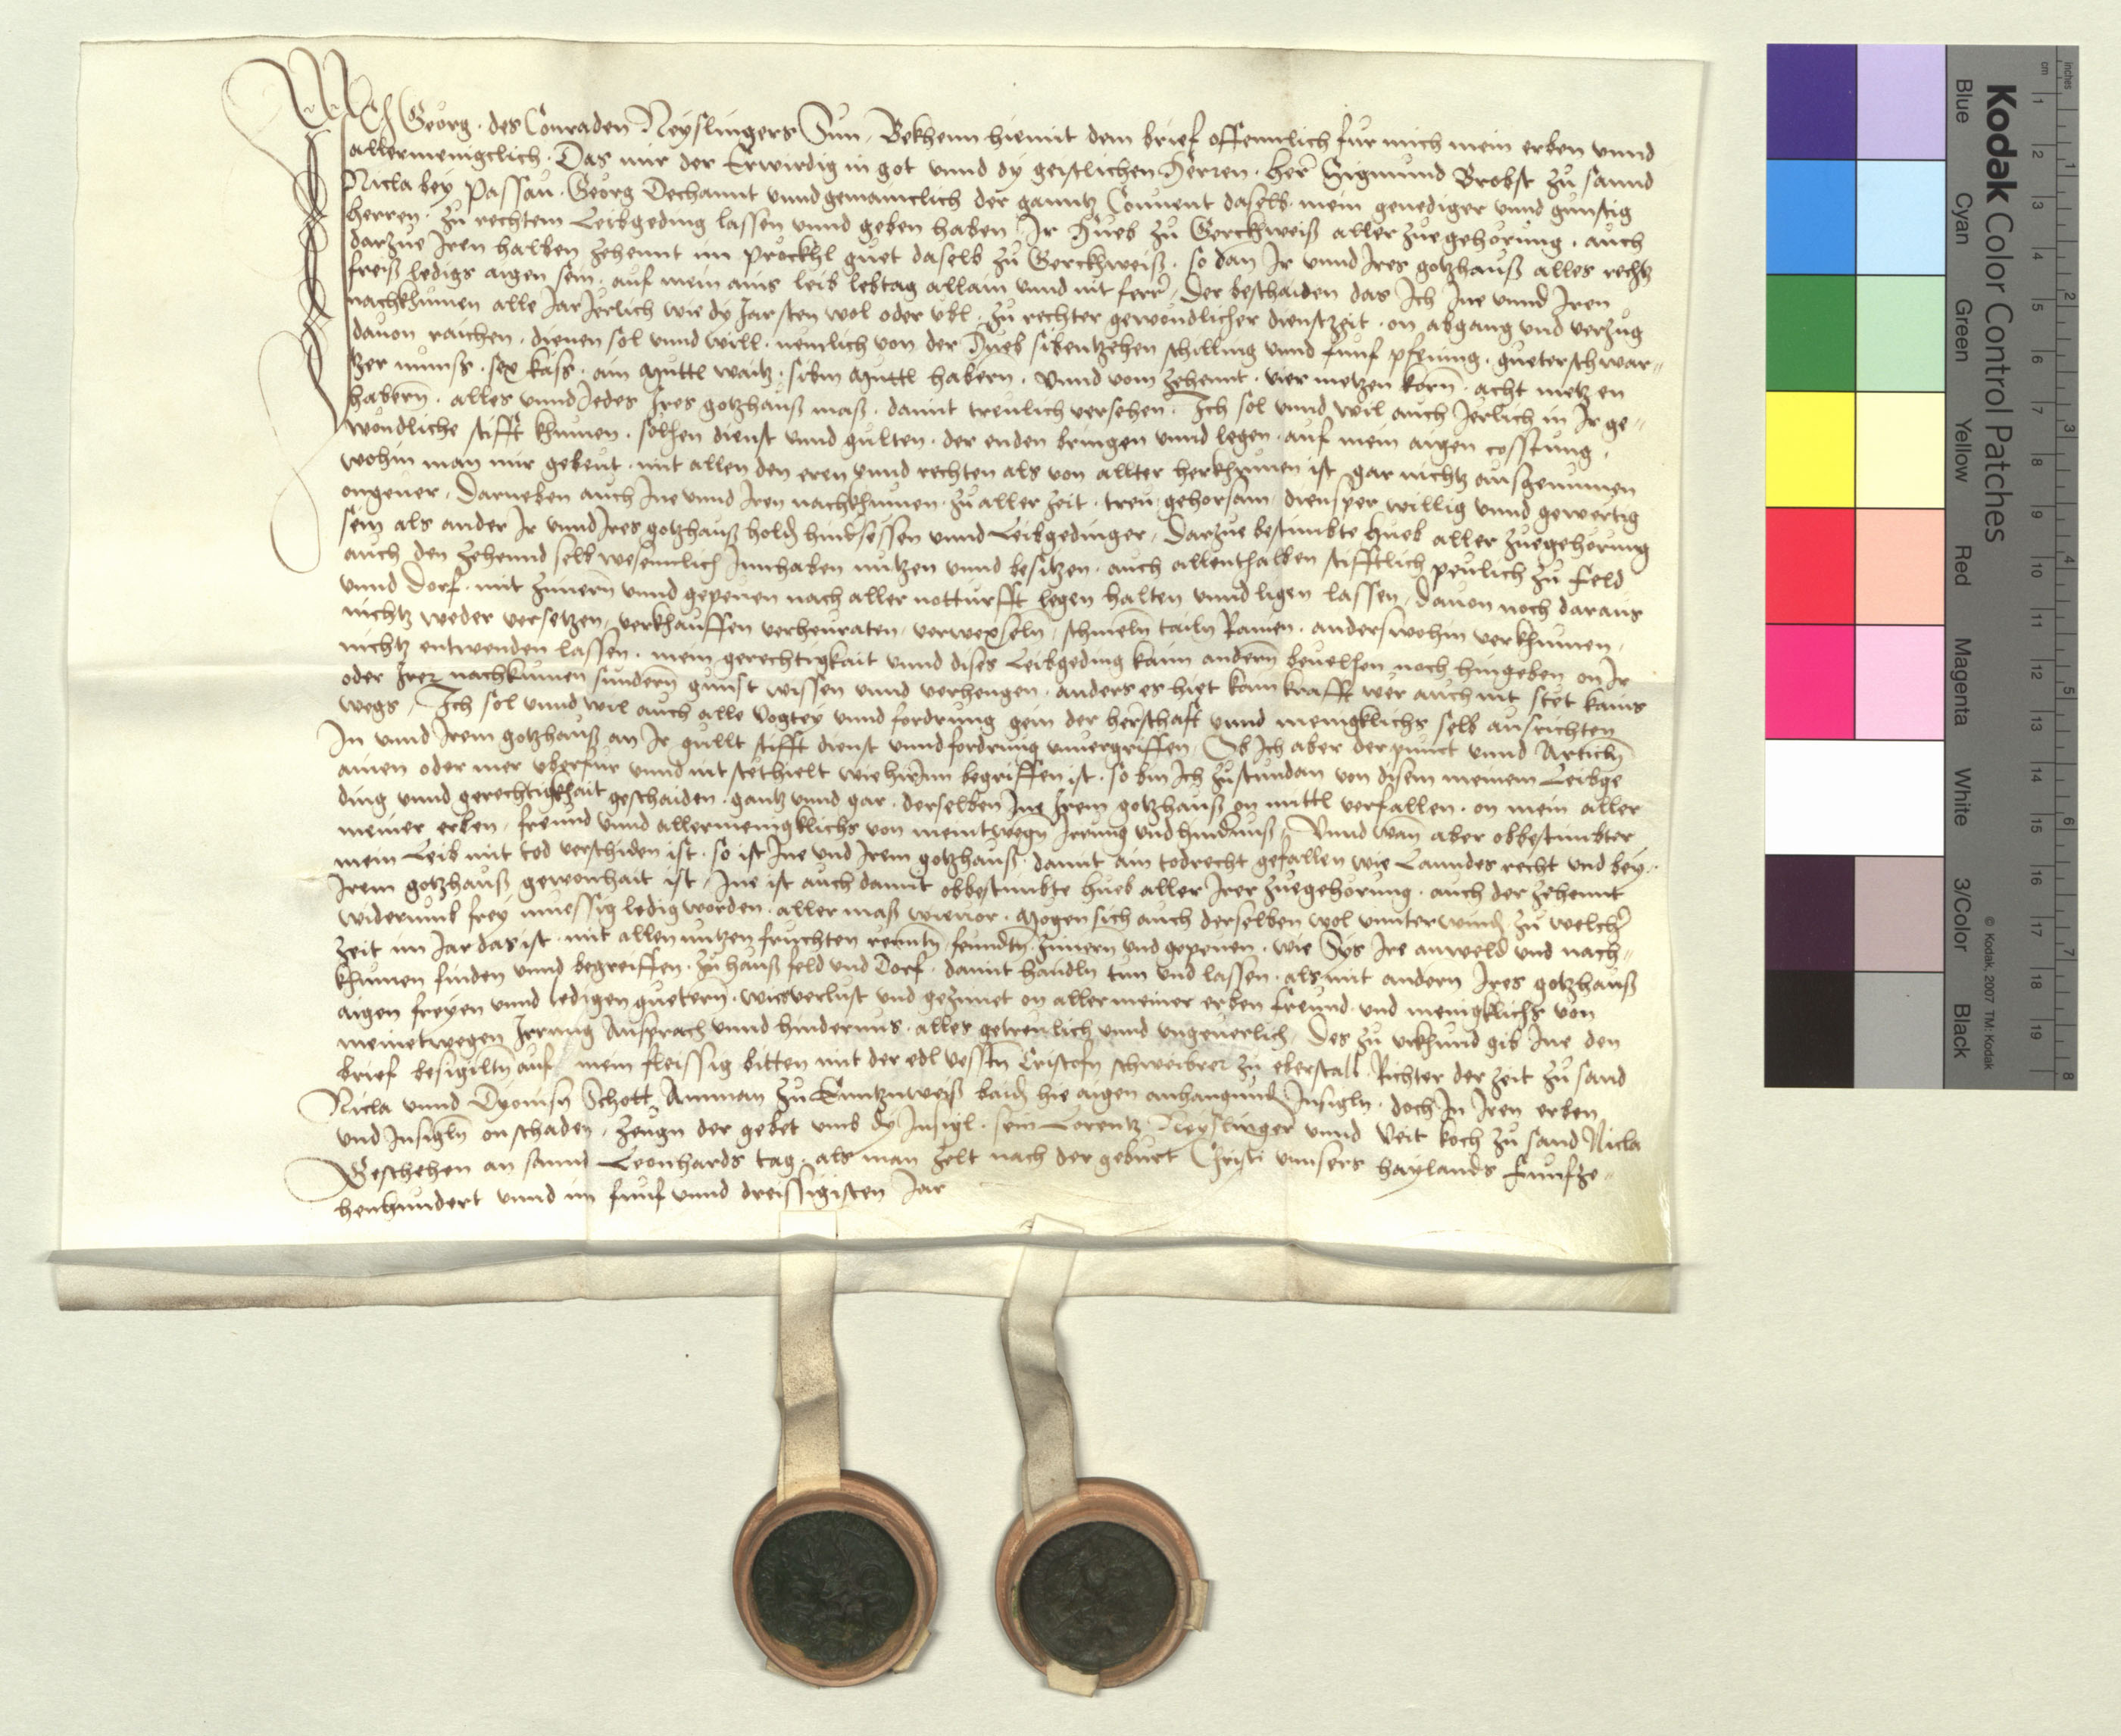 Ich Georg des Conraden Neyslingers Sun, Bekhenn hiemit dem brief offennlich fur mich mein erben unnd
allermenigclich. Das mir der Erwirdig in got unnd dy geistlichen Herren. Herr Sigmund Brobst zu sannd
Nicla bey Passau. Georg Dechannt unnd gemainclich der ganntz Convent daselb. mein genediger unnd gunstig
herren. zu rechtem Leibgeding lassen unnd geben haben Ir Hueb zu Gerchweiß aller zuegehorung. auch
darzue Iren halben zehennt im prockhl guet daselb zu Gerckhweiß. so dan Ir unnd Ires gotzhauß alles rechtz
freiß ledigs aigen sein. auf mein ains leib lebtag allain unnd nit ferr. Der beschaiden das Ich Ine unnd Iren
nachkhumen alle Jar Jerlich wie dy Jar sten wol oder ubl. zu rechter gewondlicher dienstzeit. on abgang und verzug
davon raichen. dienen sol unnd will. nemlich von der Hueb sibentzehen schilling unnd funf pfening. gueter schwar-
tzer munss. sex käss. ain Muttl waitz. sibm Muttl habern. Unnd vom zehennt. vier metzen korn. acht metzen
habern. alles unnd Jedes Ires gotzhauß maß. damit treulich versehen. Ich sol unnd wil auch Jerlich in Ir ge-
wondliche stifft khumen. solhen dienst unnd gulten. der enden bringen unnd legen. auf mein aigen cosstung.
wohin man mir gebeut. mit allen den eren unnd rechten als von allter herkhumen ist gar nichtz ausgenumen
ongever. Darneben auch Ine unnd Iren nachkhumen. zu aller zeit. treu gehorsam diensper willig unnd gewertig
sein als ander Ir unnd Ires gotzhauß hold hindsessen unnd Leibgedinger. Darzue bestimbte hueb aller zuegehorung
auch den zehennd selb wesennlich Innhaben nutzen unnd besitzen. auch allenthalben stifftlich peulich zu feld
unnd Dorf. mit zimern unnd gepeuen nach aller notturfft legen halten unnd ligen lassen. davon noch daraus
nichtz weder versetzen, verkhauffen verheuraten, verwexseln, schmeln tailn Ramen. anderswohin verkhumen,
nichtz entwenden lassen. mein gerechtigkait unnd dises Leibgeding kaim andern bevelhen noch hingeben on Ir
oder Irer nachkumen sundern gunst wissen unnd verhengen. anders es hiet kain krafft wer auch nit stet kains
wegs. Ich sol unnd wil auch alle Vogtey unnd fordrung gein der herschaft unnd menigklichs selb ausrichten
In unnd Irem gotzhauß an Ir gullt stifft dienst unnd fordrung unvergriffen. Ob Ich aber der punct unnd Articln
ainen oder mer uberfur unnd nit stet hielt wie hierinn begriffen ist. so bin Ich zustundan von disem meinem Leibge
ding unnd gerechtigkhait geschaiden. gantz unnd gar. derselben Ine Irem gotzhauß on mittl verfallen. on mein aller
meiner erben, freund unnd allermenigklichs von meintwegn Irrung und hindrnuß. Unnd wan aber obbestimbter
mein Leib mit tod verschiden ist. so ist Ine und Irem gotzhauß. damit ain todrecht gefallen wie Lanndes recht und bey
Irem gotzhauß gewonhait ist. Ine ist auch damit obbestimbte hueb aller Irer zuegehorung. auch der zehennt
widerumb frey muessig ledig worden. aller maß wie vor. Mogen sich auch derselben wol unnterwind zu welcher
zeit im Jar das ist. mit allen nutzen fruchten renntn, feundtn. zimern und gepeuen. wie Sys Ire anweld und nach-
khumen finden unnd begreiffen. zu hauß feld und Dorf. damit handln tun und lassen. als mit andern Ires gotzhauß
aigen freyen unnd ledigen guetern. wie verlust und gezimet on aller meiner erben freund. und menigklichs von
meinetwegen Irrung Ansprach unnd hindernus. alles getreulich unnd ungeverlich. Des zu urkhund gib Ine den
brief besigiltn auf mein fleissig bitten mit der edl vesstn Cristofn schweibrer zu eberstall Richter der zeit zu sand
Nicla unnd Dyonisy Schott Amman zu Cuntznweiß baid hie aigen anhangund Insigln. doch In Iren erben
und Insigln on schaden. zeugn der gebet umb dy Insigl. sein Lorentz Neyslinger unnd Veit koch zu sand Nicla
Geschehen an sannd Leonhards tag. als man zelt nach der geburt Christi unnsers haylands funfze-
henhundert unnd im funf unnd dreissigisten Jar
Kodak Color Control Patches
Blue Cyan Green Yellow Red Magenta White 3/Color Black
© Kodak, 2007 TM: Kodak
cm 1 2 3 4 5 6 7 8 9 10 11 12 13 14 15 16 17 18 19
inches 1 2 3 4 5 6 7 8